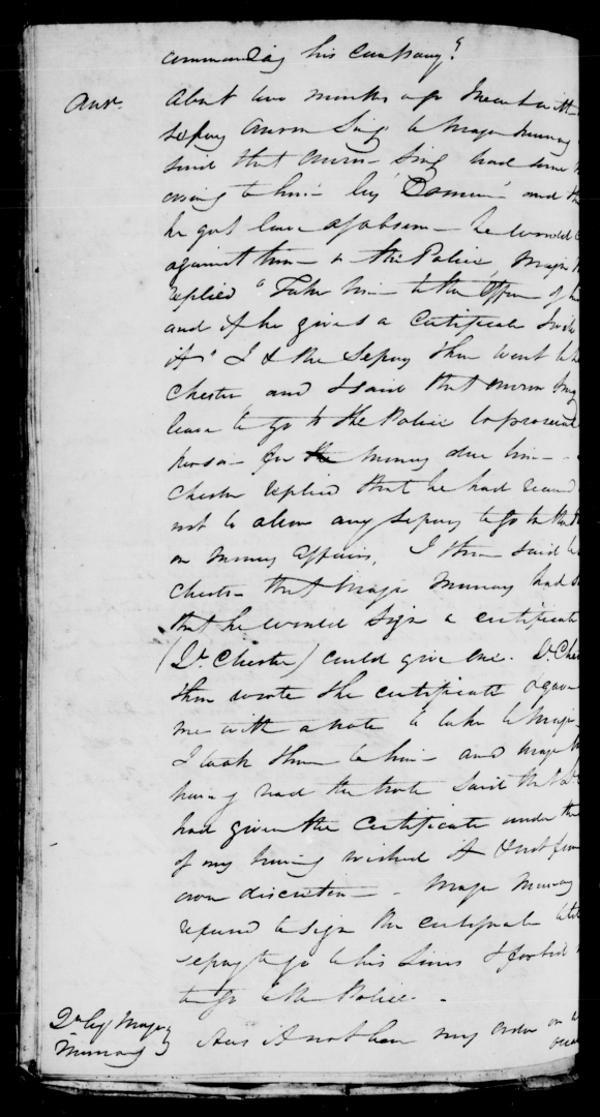 commanding his company?
Ansr. About two months ago I went with
Sepoy Anson Sing to Major Murray
said that Sing had some
owing to him by and
he got leave of absence he would
against them in the Police, Major
replied "Take him to the Officer of
and if he gives a Certificate I will
it" I & the Sepoy then went to
Chester and I said that Sing
leave to go to the Police to prosecute
person for the money due him
Chester replied that he had
not to allow any Sepoy to go to the
on money affairs, I then said to
Chester that Major Murray had
that he would sign a certificate
(Dr. Chester) could give one. Dr. Che
then wrote the certificate & gave
me with a note to take to Major
I took them to him and Major
having read the note said that Dr
had given the Certificate under the
of my having wished it & not from
own discretion. Major Murray
refused to sign the certificate told
Sepoy to go to his Lines & forbid
to go to the Police.
Qn by Major Murray } Was it not then my order on